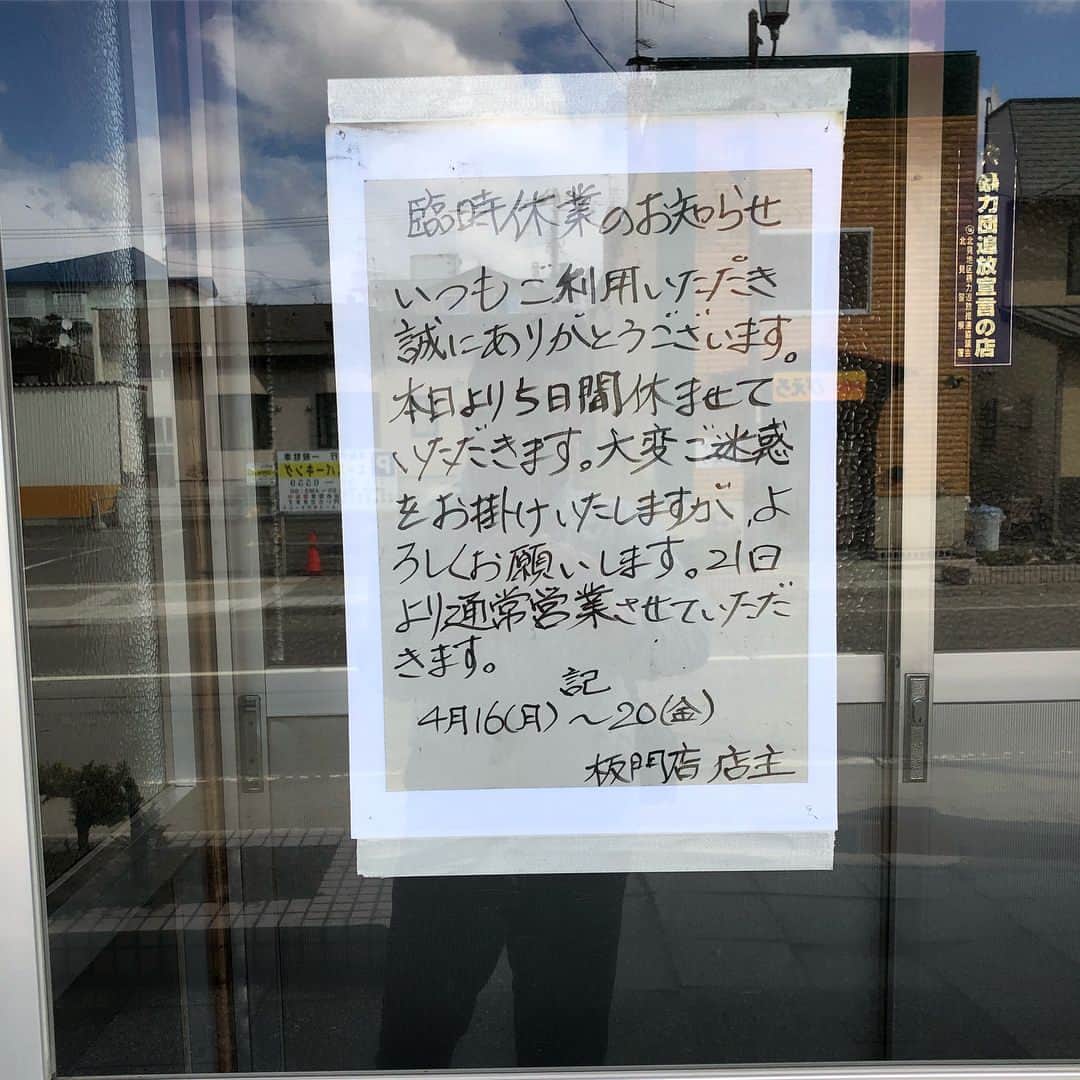 臨時休業のお知らせ
いつもご利用いただき
誠にありがとうございます。
本日より5日間休ませて
いただきます。大変ご迷惑
をお掛けいたしますが、よ
ろしくお願いします。21日
より通常営業させていただ
きます。
記
4月16(月)〜20(金)
板門店 店主
暴力団追放宣言の店